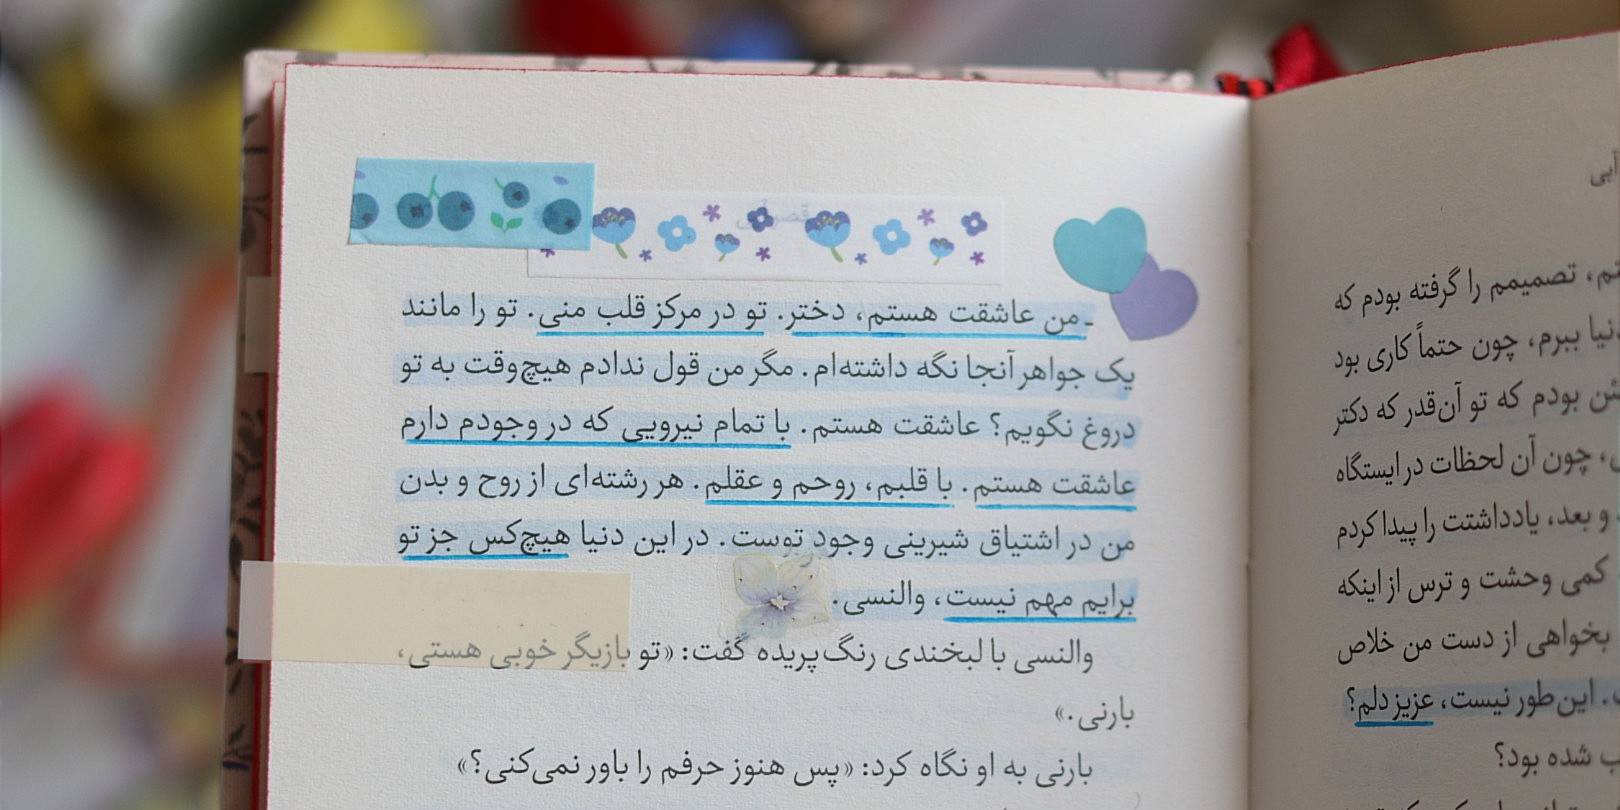 ـ من عاشقت هستم، دختر. تو در مرکز قلب منی. تو را مانند
یک جواهر آنجا نگه داشته‌ام. مگر من قول ندادم هیچ‌وقت به تو
دروغ نگویم؟ عاشقت هستم. با تمام نیرویی که در وجودم دارم
عاشقت هستم. با قلبم، روحم و عقلم. هر رشته‌ای از روح و بدن
من در اشتیاق شیرینی وجود توست. در این دنیا هیچ‌کس جز تو
برایم مهم نیست، والنسی.
والنسی با لبخندی رنگ‌پریده گفت: «تو بازیگر خوبی هستی،
بارنی.»
بارنی به او نگاه کرد: «پس هنوز حرفم را باور نمی‌کنی؟»
آبی
تصمیمم را گرفته بودم که
ببرم، چون حتماً کاری بود
بودم که تو آن‌قدر که دکتر
چون آن لحظات در ایستگاه
و بعد، یادداشتت را پیدا کردم
کمی وحشت و ترس از اینکه
بخواهی از دست من خلاص
این‌طور نیست، عزیز دلم؟
شده بود؟